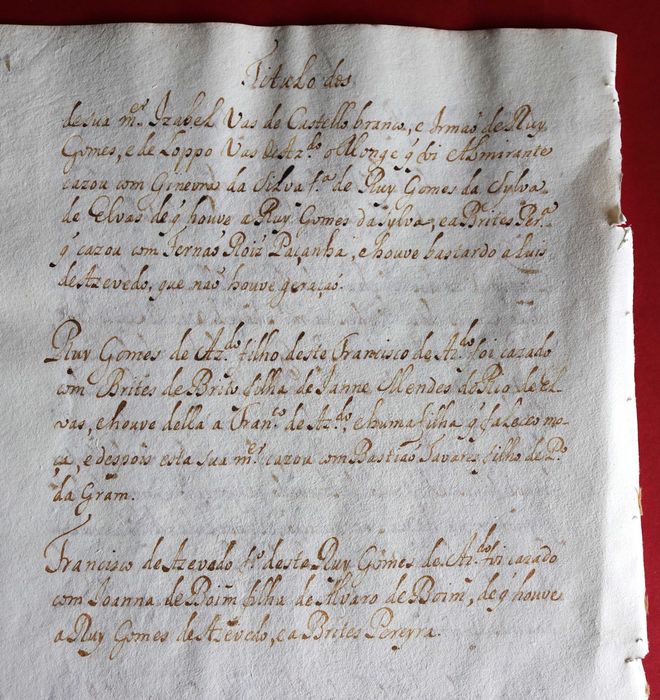 Titulo des
de sua m.er Izabel Vas de Castello branco, e Irmaõ de Ruy
Gomes, e de Loppo Vas de Az.do o Monge q̃ foi Almirante
cazou com Ginevra da Silva f.a de Ruy Gomes da Sylva
de Elvas de q̃ houve a Ruy Gomes da Sylva, e a Brites Per.a
q̃ cazou com Fernaõ Roiz Paçanha, e houve bastardo a Luis
de Azevedo, que naõ houve geraçaõ.
Ruy Gomes de Az.do filho deste Francisco de Az.do foi cazado
com Brites de Brito filha de Janne Mendes do Rio de El
vas, e houve della a Fran.co de Az.do, e huma filha q̃ faleceo mo
ça, e despois esta sua m.er cazou com Bastiaõ Tavares filho de P.o
da Gram.
Francisco de Azevedo f.o deste Ruy Gomes de Az.do foi cazado
com Joanna de Boim filha de Alvaro de Boim, de q̃ houve
a Ruy Gomes de Azevedo, e a Brites Pereyra.